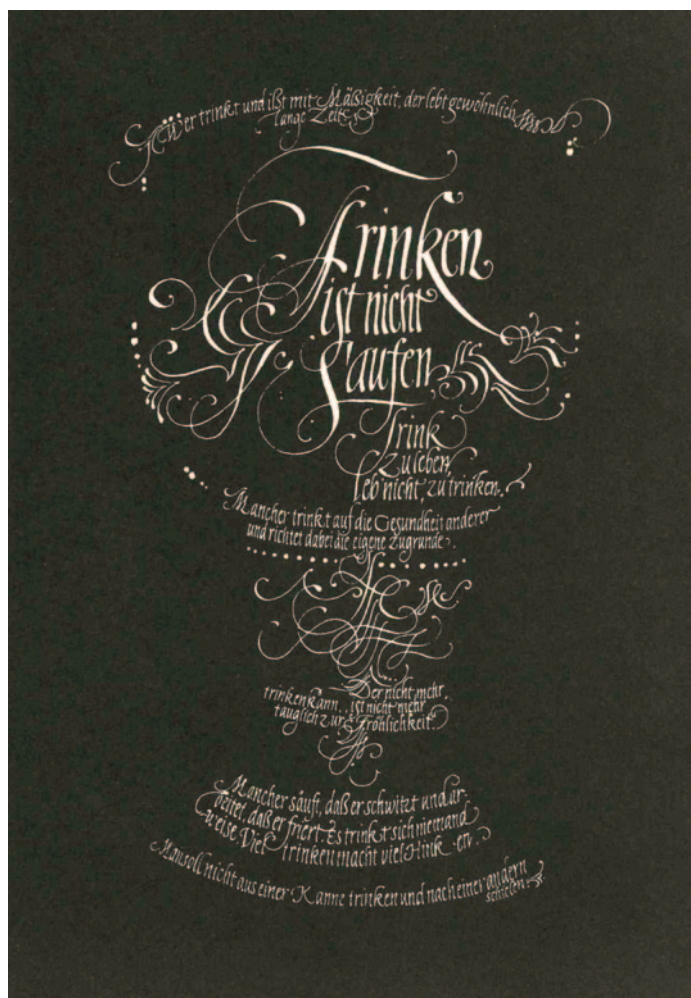 Wer trinkt und ißt mit Mäßigkeit, der lebt gewöhnlich
lange Zeit
Trinken
ist nicht
Saufen
Trink
zu leben,
leb nicht, zu trinken.
Mancher trinkt auf die Gesundheit anderer
und richtet dabei die eigene zugrunde.
Der nicht mehr
trinken kann, ist nicht mehr
tauglich zur Fröhlichkeit.
Mancher säuft, daß er schwitzt und ar-
beitet, daß er friert. Es trinkt sich niemand
weise. Viel trinken macht viel Hinken.
Man soll nicht aus einer Kanne trinken und nach einer andern
schielen.